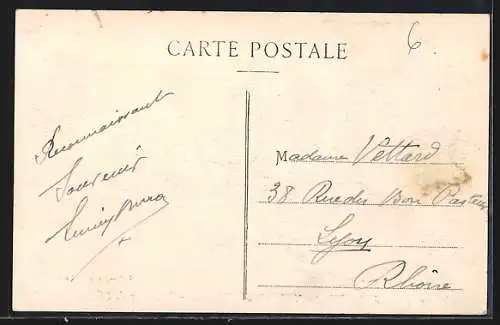 CARTE POSTALE
6
Reconnaissant
Souvenir
Madame Vettard
38 Rue du Bon Pasteur
Lyon
Rhône